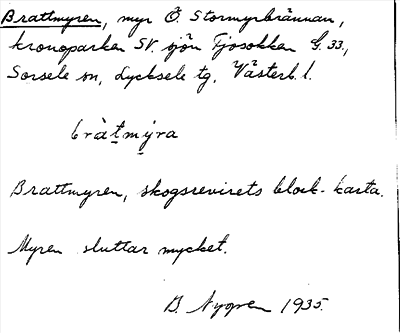 Brattmyren, myr Ö. Stormyrbrännan,
kronoparken SV. sjön Tjosokken G. 33.,
Sorsele sn, Lycksele tg, Västerb. l.
bràt̲m̲ýra
Brattmyren, skogsrevirets block-karta.
Myren sluttar mycket.
B. Nygren 1935.